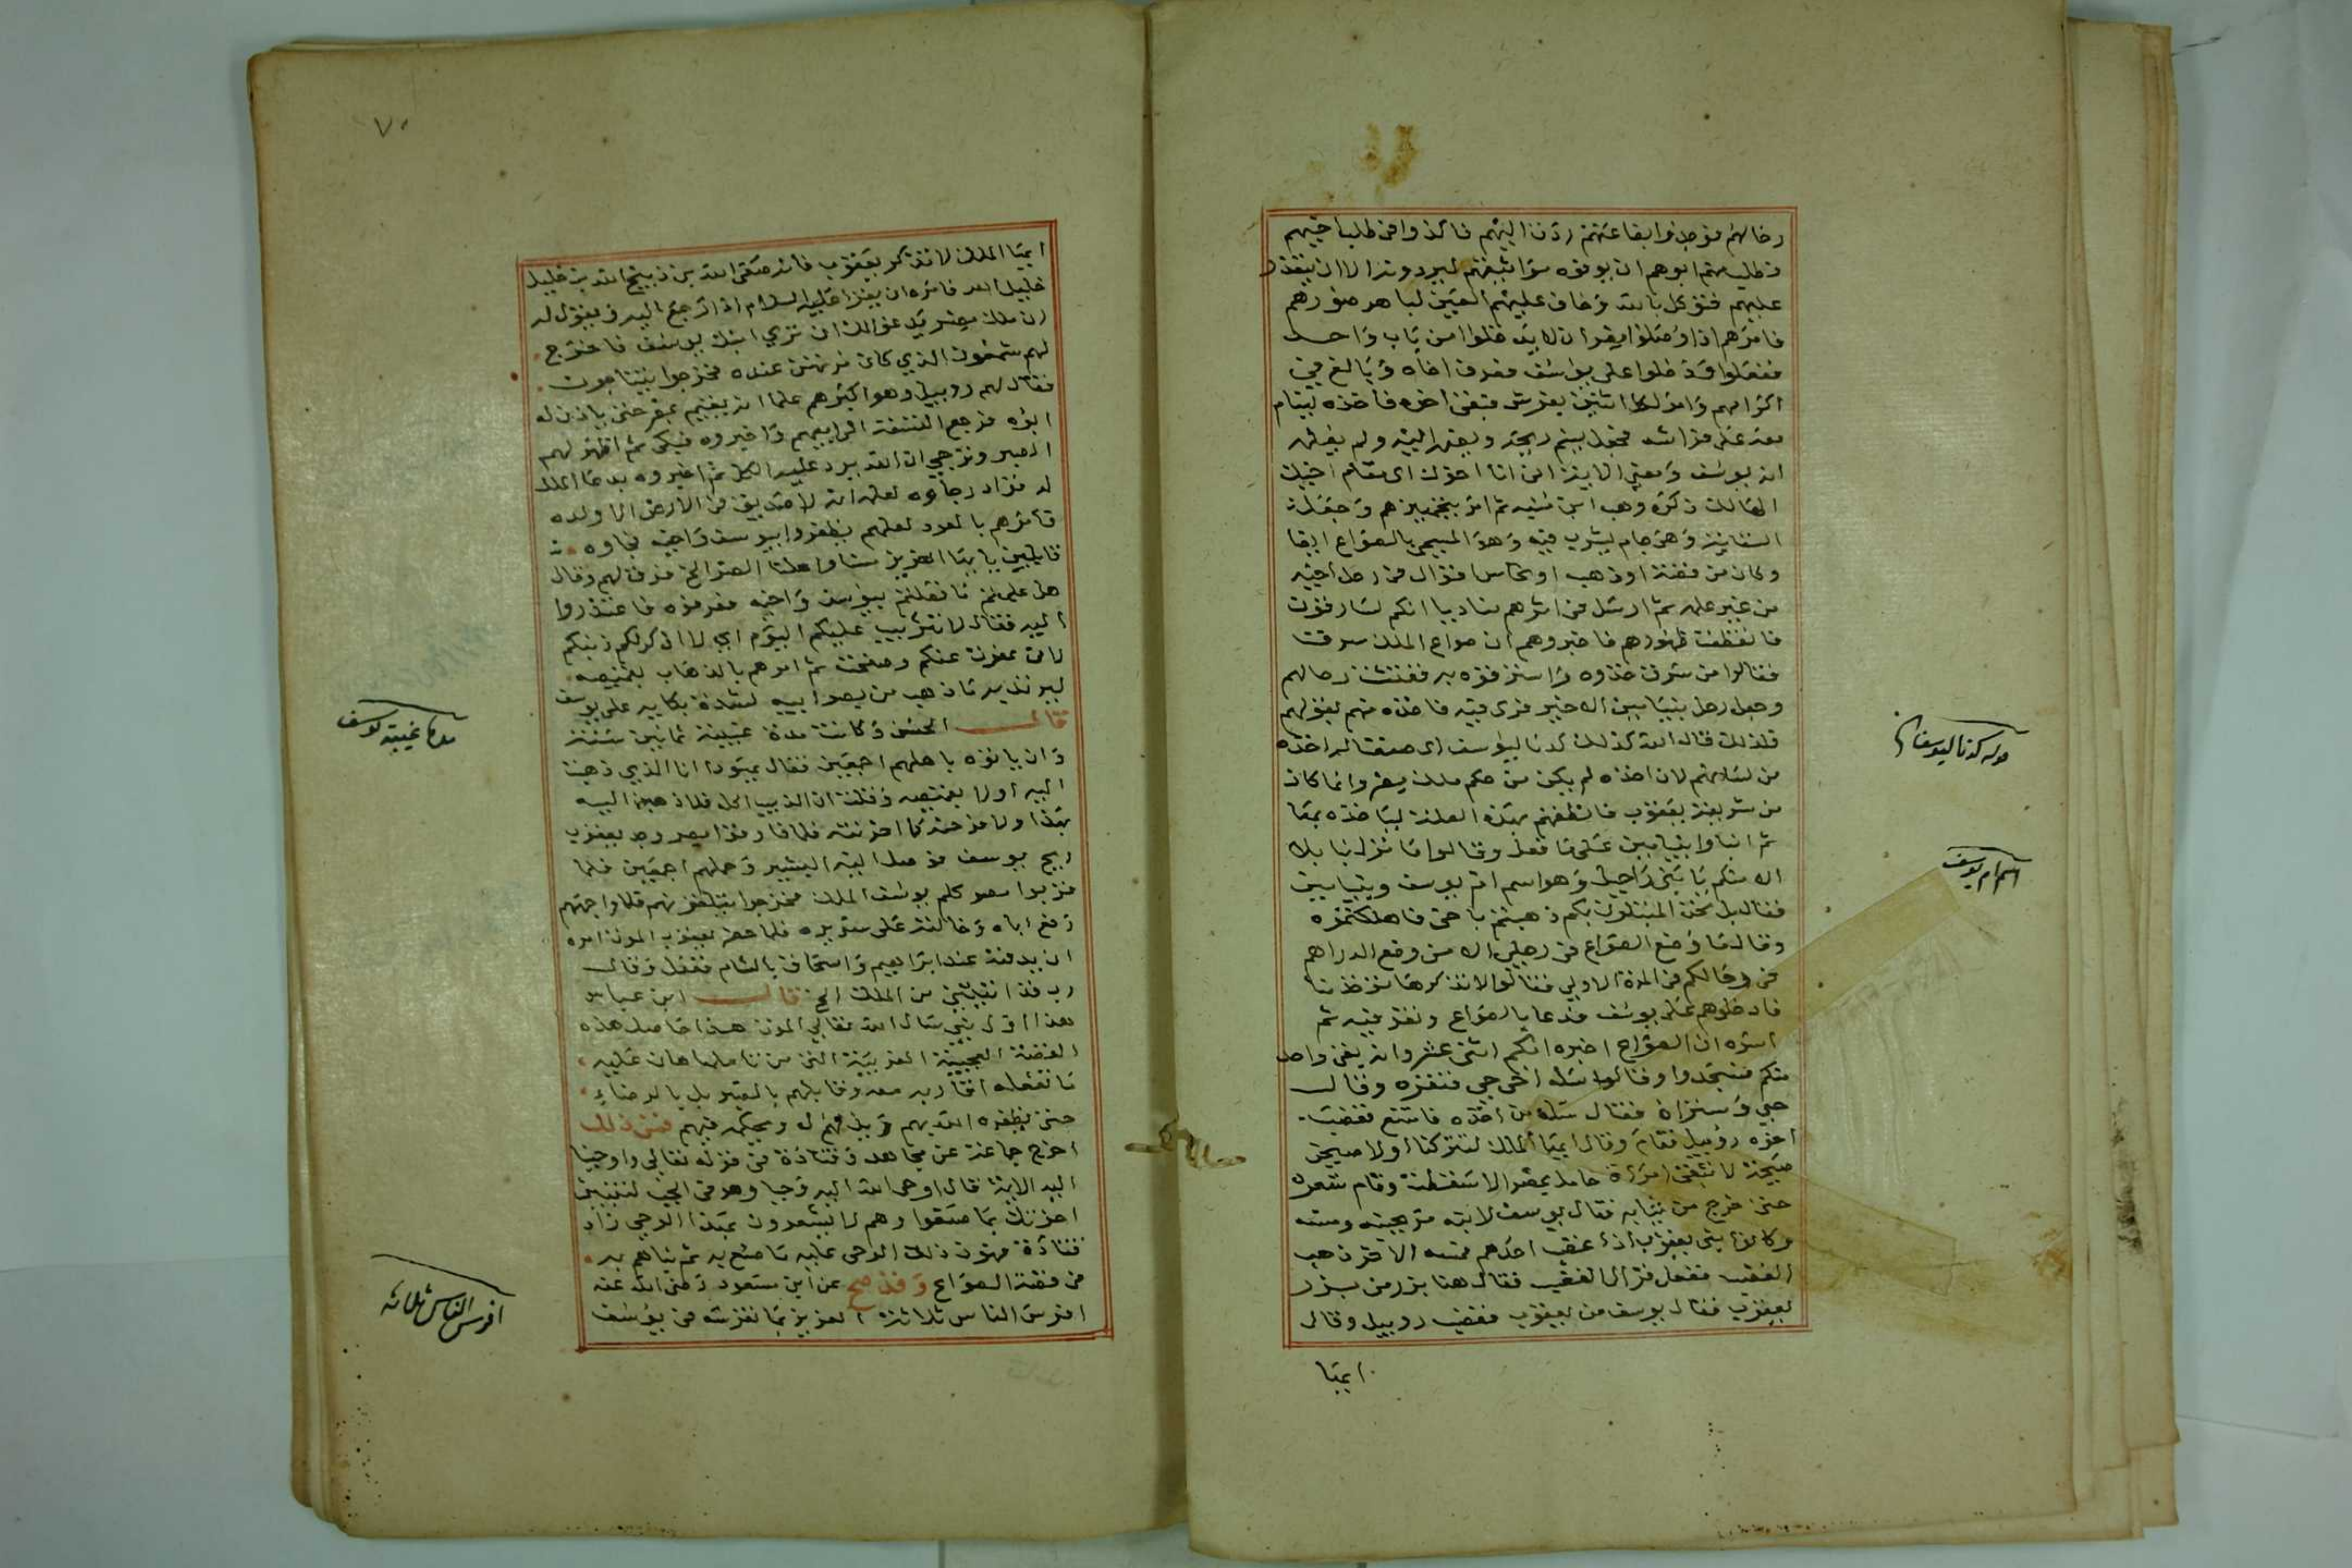 رحالهم فوجدوا بضاعتهم ردت اليهم فاكدوا في طلب اخيهم
فطلب منهم ابوهم ان يوتوه موثقهم ليردونه الا ان يتعذر
عليهم فتوكل بالله وخاف عليهم العين لباهر صورهم
فامرهم اذا وصلوا مصر ان لا يدخلوا من باب واحد
ففعلوا ودخلوا على يوسف فعرف اخاه وبالغ في
اكرامهم وامر لكل اثنين بفرش فبقي اخوه فاخذه لينام
معه على فراشه فجعل يشم ريحه ويضمه اليه ولم يعلمه
انه يوسف ومعنى الاية اني انا اخوك اي مقام اخيك
الهالك ذكره وهب ابن منبه ثم امر بتجهيزهم وجعلت
السقاية وهي جام يشرب فيه وهو المسمى بالصواع ايضا
وكان من فضة او ذهب او نحاس اقوال في رحل اخيه
من غير علمه ثم ارسل في اثرهم مناديا انكم لسارقون
فانقطعت ظهورهم فاخبروهم ان صواع الملك سرقت
فقالوا من سرق خذوه واسترقوه به ففتشت رحالهم
وجعل رحل بنيامين الاخير فرى فيه فاخذه منهم بقولهم
فلذلك قال الله كذلك كدنا ليوسف اي صنعنا له اخذه
من اخوتهم لان اخذه لم يكن من حكم ملك مصر وانما كان
من شريعة يعقوب فانطقهم بهذه العلة ليباخذه بها
ثم انبوا بنيامين على ما فعل وقالوا ما نزل بنا بلاء
الا منكم يا بني راحيل وهو اسم ام يوسف وبنيامين
فقال بل نحن المبتلون بكم ذهبتم باخي فاهلكتموه
وقال ما وضع الصواع في رحلي الا من وضع الدراهم
في رحالكم في المرة الاولى فقالوا لا تذكرها نوخذ بها
فادخلوهم على يوسف فدعا بالصواع ونقر فيه ثم
اسره ان الصواع اخبره انكم اثني عشر وانه بقي واحد
منكم فسجدوا وقالوا سله اخي حي فنقره وقال
حي وسنراه فقال سله من اخذه فامتنع فغضب
اخوه روبيل فقام وقال ايها الملك لتتركنا اولا صيحن
صيحة لا تبقى امراة حامل بمصر الا اسقطت وقام شعره
حتى خرج من ثيابه فقال يوسف لابنه قم بجنبه ومسه
وكان بني يعقوب اذا غضب احدهم فمسه الاخر ذهب
الغضب ففعل فزال الغضب فقال هنا بزر من بزر
يعقوب فقال يوسف من يعقوب فغضب روبيل وقال
ايها
قوله كدنا ليوسف
اسم ام يوسف
٧٠
ايها الملك لا تذكر يعقوب فانه صفي الله بن ذبيح الله بن خليل
خليل الله فامره ان يقرا عليه السلام اذا رجع اليه ويقول له
ان ملك مصر يدعو لك ان ترى ابنك يوسف فاخرج
لهم شمعون الذي كان مرتهن عنده فخرجوا يتناجون
فقال لهم روبيل وهو اكبرهم علما انه يقيم بمصر حتى ياذن له
ابوه فرجع التسعة الى ابيهم واخبروه فبكى ثم اظهر لهم
الصبر وترجي ان الله يرد عليه الكل ثم اخبروه بدعا الملك
له فزاد رجاوه لعلمه انه لا صديق في الارض الا ولده
فامرهم بالعود لعلهم يظفروا بيوسف واخيه فجاوه
قايلين يا ايها العزيز مسنا واهلنا الضر الخ فرق لهم وقال
هل علمتم ما فعلتم بيوسف واخيه فعرفوه فاعتذروا
اليه فقال لا تثريب عليكم اليوم اي لا اذكر لكم ذنبكم
لاني عفوت عنكم وصفحت ثم امرهم بالذهاب بقميصه
ليرتد به ما ذهب من بصر ابيه لشدة بكايه على يوسف
قال الحسن وكانت مدة غيبته ثمانين سنة
وان ياتوه باهلهم اجمعين فقال يهودا انا الذي ذهبت
اليه اولا بقميصه وقلت ان الذيب اكله فلاذهبن اليه
بهذا ولا فرحنه كما احزنته فلما فارقوا مصر وجد يعقوب
ريح يوسف فوصل اليه البشير وحملهم اجمعين فلما
قربوا مصر كلم يوسف الملك فخرجوا يتلقونهم فلما واجهتهم
رفع اباه وخالته على سريره فلما حضر يعقوب الموت امره
ان يدفنه عند ابراهيم واسحاق بالشام ففعل وقال
رب قد اتيتني من الملك الخ قال ابن عباس
هذا اول نبي سال الله تعالى الموت هذا حاصل هذه
القصة العجيبة الغريبة التي من تاملها هان عليه
ما تفعله اقاربه معه وقابلهم بالصبر بل بالرضاء
حتى يظفره الله بهم ويذلهم له ويحكمه فيهم فمن ذلك
اخرج جماعة عن مجاهد وقتادة في قوله تعالى واوحينا
اليه الاية قال اوحى الله اليه وحيا وهو في الجب لتنبين
اخوتك بما صنعوا وهم لا يشعرون بهذا الوحي زاد
قتادة فهون ذلك الوحي عليه ما صنع به ثم نباهم به
في قصة الصواع وقد صح عن ابن مسعود رضي الله عنه
افرس الناس ثلاثة العزيز بما تفرسه في يوسف
مدة غيبته يوسف
افرس الناس ثلاثة